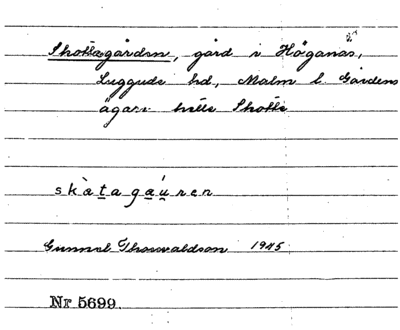 Skottagården, gård i Höganäs,
Luggude hd, Malm l. Gårdens
ägare hette Skotte
skàtagáuren
Gunnel Thorvaldson 1945
Nr 5699.